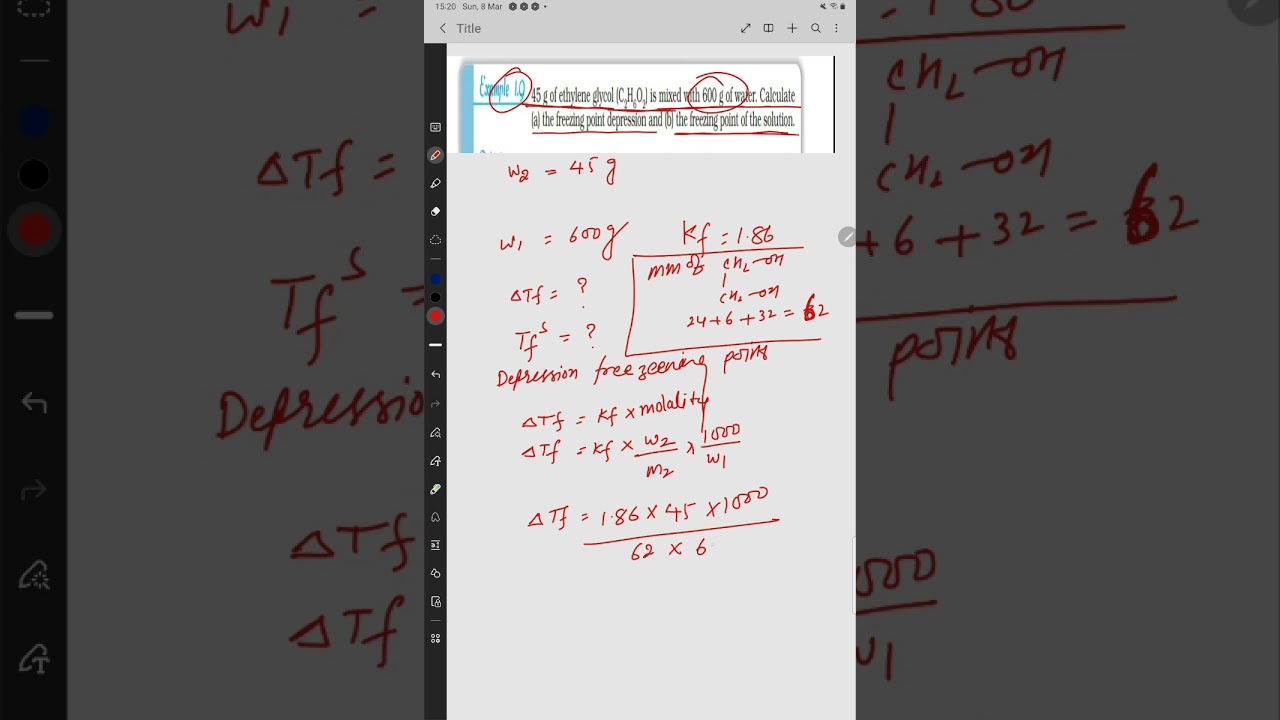 15:20 Sun, 8 Mar
Title
Example 1.9
45 g of ethylene glycol (C2H6O2) is mixed with 600 g of water. Calculate
(a) the freezing point depression and (b) the freezing point of the solution.
w2 = 45 g
w1 = 600 g
Kf = 1.86
mm of CH2-OH
|
CH2-OH
24 + 6 + 32 = 62
ΔTf = ?
Tf^s = ?
Depression freezeening points
ΔTf = Kf × molality
ΔTf = Kf × w2/m2 × 1000/w1
ΔTf = 1.86 × 45 × 1000
62 × 6
w1
1.86
CH2-OH
|
CH2-OH
+ 6 + 32 = 62
ΔTf =
Tf^s =
Depressio
points
ΔTf
ΔTf
1000
w1